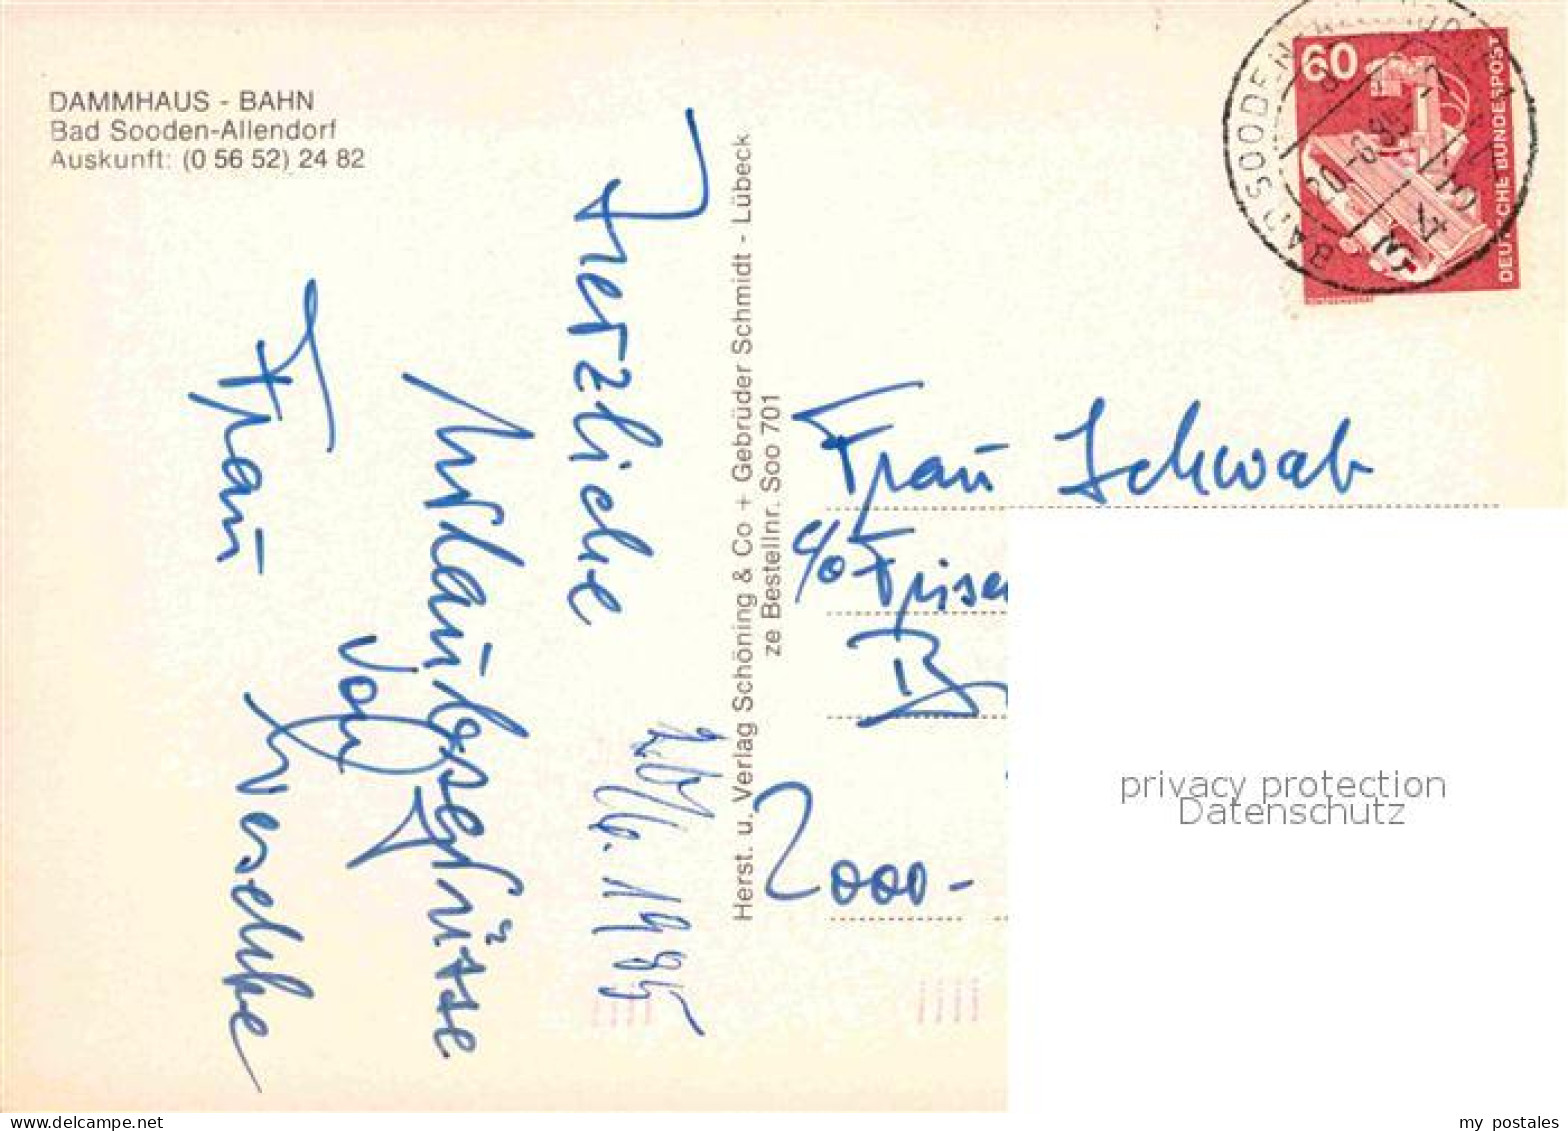 DAMMHAUS - BAHN
Bad Sooden-Allendorf
Auskunft: (0 56 52) 24 82
Herzliche
Urlaubsgrüsse
von
Frau
20/6. 1985
Herst. u. Verlag Schöning & Co + Gebrüder Schmidt - Lübeck
ze Bestellnr. Soo 701
60
DEUTSCHE BUNDESPOST
BAD SOODEN-ALLENDORF
20.-6.85
3437
Frau Schwab
c/o
2000-
privacy protection
Datenschutz
delcampe.net
my_postales